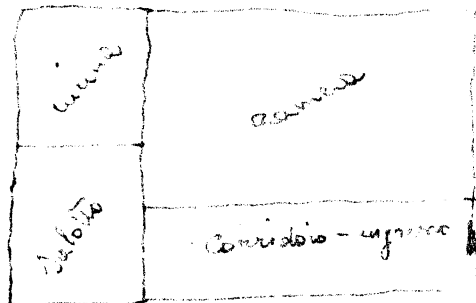 cucina
camera
Salotto
Corridoio - ingresso